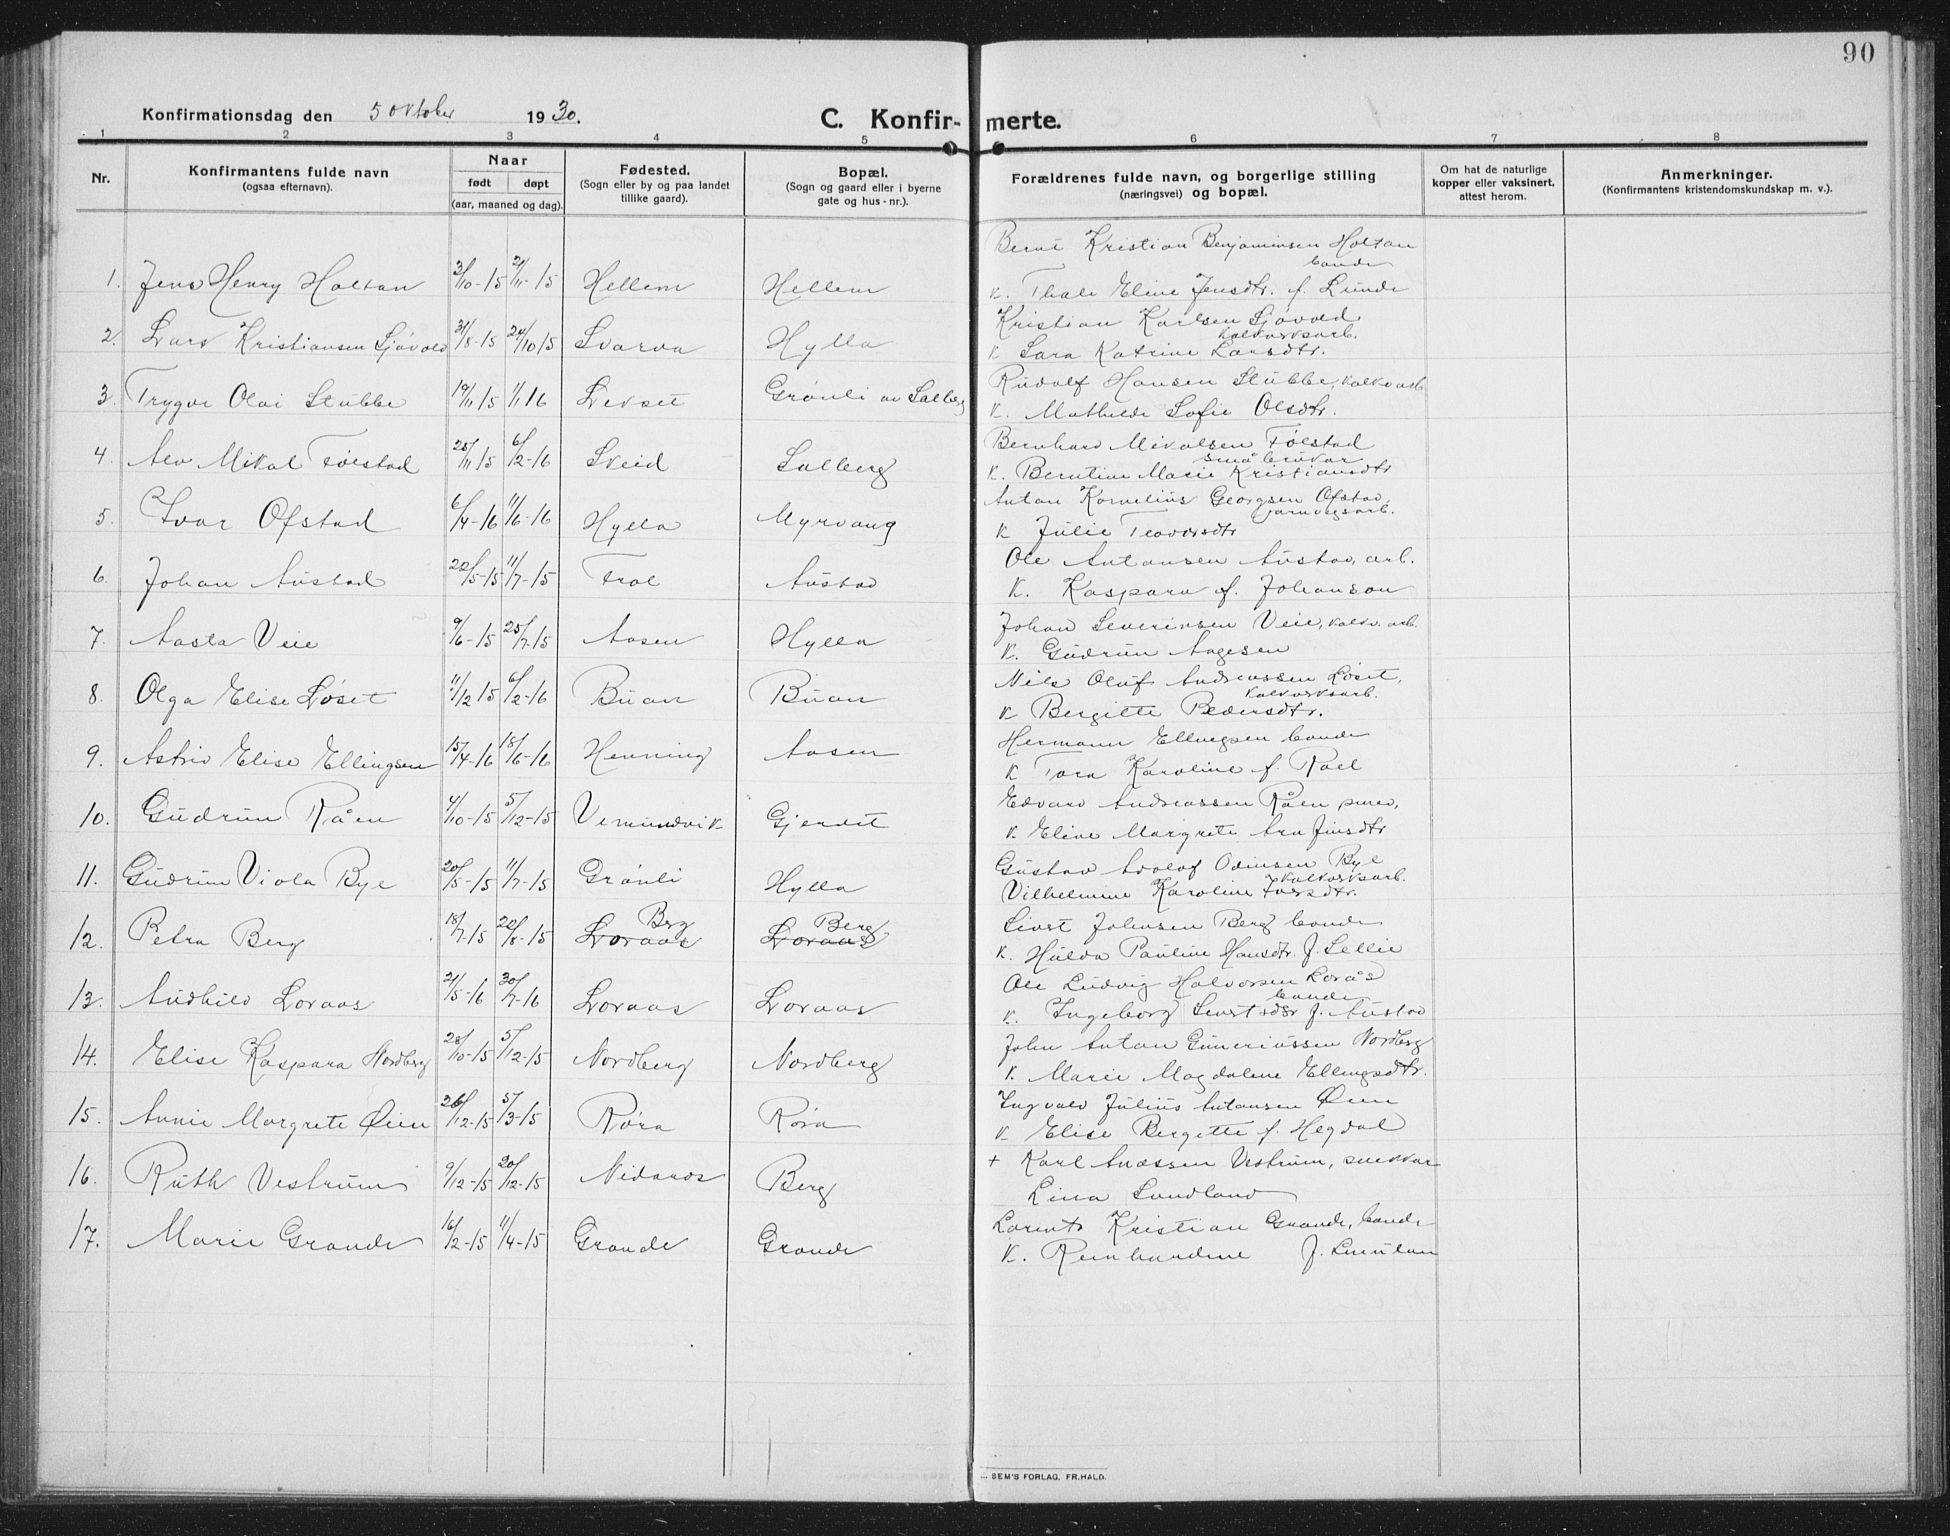 90
Konfirmationsdag den 5 oktober 1930.
C. Konfirmerte.
1 2 3 4 5 6 7 8
Nr.
Konfirmantens fulde navn
(ogsaa efternavn).
Naar
født døpt
(aar, maaned og dag).
Fødested.
(Sogn eller by og paa landet
tillike gaard).
Bopæl.
(Sogn og gaard eller i byerne
gate og hus-nr.).
Forældrenes fulde navn, og borgerlige stilling
(næringsvei) og bopæl.
Om hat de naturlige
kopper eller vaksinert,
attest herom.
Anmerkninger.
(Konfirmantens kristendomskundskap m. v.).
Bernt Kristian Benjaminsen Holtan
bonde
1. Jens Henry Holtan 3/10-15 21/11-15 Hellem Hellem K. Thale Eline Jensdtr. f. Lunde
Kristian Karlsen Sjøvold
kalkverksarb.
2. Lars Kristiansen Sjøvold 31/8-15 24/10 15 Svarva Hylla K Sara Katrine Larsdtr.
Rudolf Hansen Stubbe, kalkv arb
3. Trygve Olai Stubbe 19/11 15 1/1 16 Grønli av Salberg
K. Mathilde Sofie Olsdtr.
Bernhard Mikalsen Følstad
småbruker
4. Alv Mikal Følstad 28/11 15 6/2-16 Sveid Salberg K. Berntine Marie Kristiansdtr
Anton Kornelius Georgsen Ofstad,
jarnvegsarb.
5. Ivar Ofstad 6/4-16 11/6-16 Hylla Myrvang K Julie
Ole Antonsen Austad, arb.
6. Johan Austad 22/5-15 11/7-15 Frol Austad K. Kaspara f. Johanson
Johan Severinsen Veie, kalkv. arb.
7. Aasta Veie 9/6-15 25/7-15 Aasen Hylla K. Gudrun Aagesen
Nils Oluf Andreassen Løset,
kalkverksarb.
8. Olga Elise Løset 11/12 15 6/2-16 Buan Buan K Bergitte Pedersdtr.
Hermann Ellingsen bonde
9. Astrid Elise Ellingsen 15/4-16 18/6-16 Henning Aasen K Tora Karoline f. Roel
Edvard Andreassen Råen
10. Gudrun Råen 4/10-15 5/12-15 Vemundvik Gjervet K. Eline Margrete
Gustav Adolof Odinsen Bye
kalkverksarb.
11. Gudrun Viola Bye 20/5-15 11/7-15 Grønli Hylla Vilhelmine Karoline Iversdtr.
Berg Berg Sivert Johnsen Berg bonde
12. Petra Berg 18/7-15 22/8-15 Loraas Loraas K. Hulda Pauline Hansdtr. f. Sellie
Ole Ludvig Halvorsen Lorås
bonde
13. Audhild Loraas 21/5-16 30/7-16 Loraas Loraas K. Ingeborg Sivertsdtr f. Austad
John Anton Guneriussen Nordberg
14. Elise Kaspara Nordberg 28/10-15 5/12-15 Nordberg Nordberg K. Marie Magdalene Ellingsdtr.
Ingvald Julius Antonsen Øien
15. Annie Margrete Øien 26/12-15 5/3-15 Røra Røra K Elise Bergette f. Hegdal
+ Karl Andssen Vestrum, snekker
16. Ruth Vestrum 9/12-15 20/12-15 Nidaros Berg Lina Sundland
Lorents Kristian Grande, bonde
17. Marie Grande 16/2-15 11/4-15 Grande Grande K. Reinhardine f.
SEM'S FORLAG, FR.HALD.